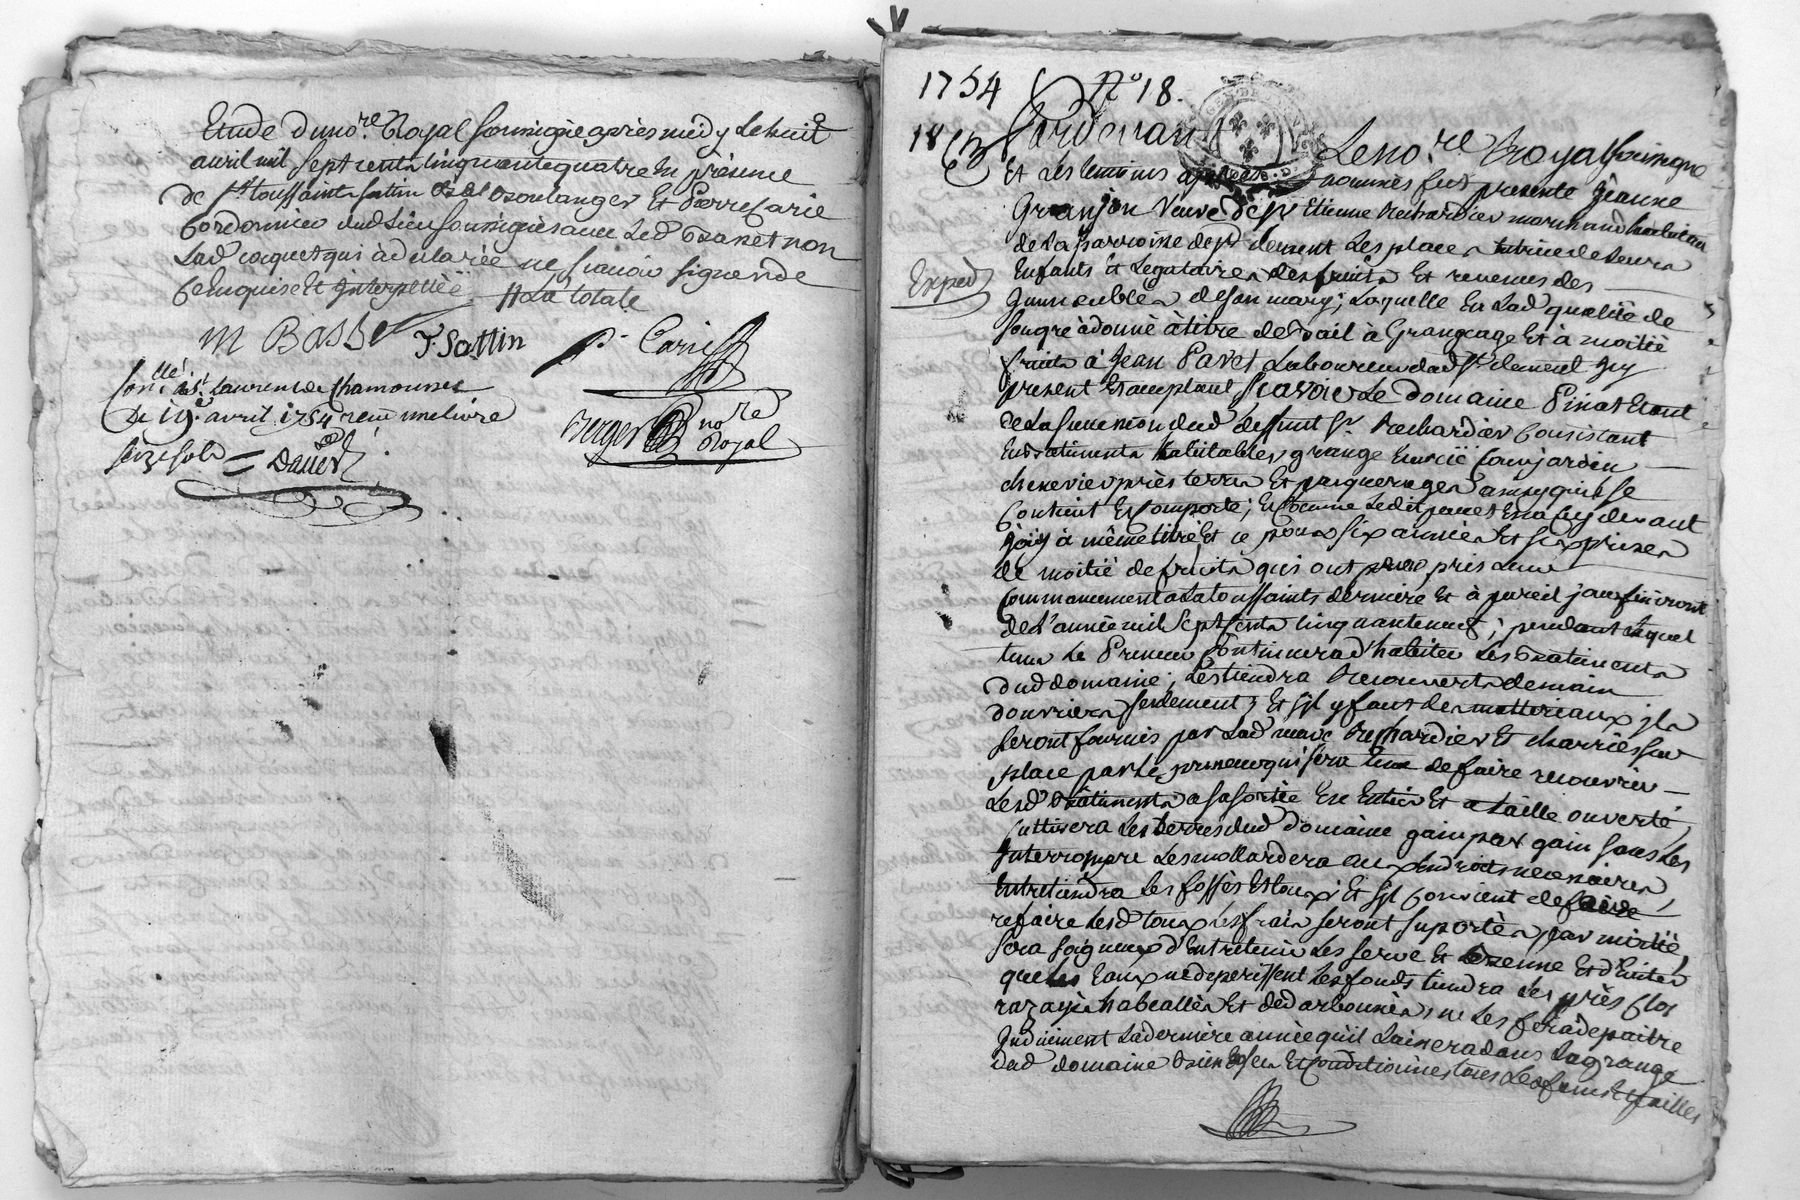 Etude dunore. Royal soussigné après midy le huit
avril mil sept cents cinquante quatre en présence
de sr. toussaint satin boulanger et Pierre Carie
Cordonnier dud. lieu soussignés avec led. Basset non
lad. qui a declarée ne sçavoir signer de
ce enquise et interpellée # La totale
m Basse F Sattin
p. Carie
Conllé à st. Laurent de Chamousset
Le 19e avril 1754 reçu une livre
seize sols = David
Berger nore
Royal
1754 No 18.
18 Pardevant Le nore. Royal soussigné
Et Les temoins après nommés fut presente jeanne
Granjon veuve de sr Etienne Richardier marchand
de la parroisse de st. Clement Les places tutrice de Leurs
Expéd
Enfants et Legataire des fruits et revenus des
immeubles de son mary; Laquelle En Lad. qualité de
son gré à donné à titre de bail à Grangeage Et à moitié
fruits à Jean Pavet Laboureur dud. st. Clement Icy
present Et acceptant sçavoir Le Domaine Pinat Etant
de La succession dud. deffunt sr. Richardier Consistant
En batiments habitables, grange Ecurie Cour jardin
chenevier près terres Et paquerages ainsy qu'il se
Contient Et Comporte; Et Comme Ledit pavet En a cy devant
joüy à même titre, Et ce pour six années Et six prises
de moitié de fruits qui ont pris Leur
Commancement à La toussaints derniere Et à pareil jour finiront
de L'année mil sept cents cinquante neuf; pendant Lequel
tems Le Preneur Continuera d'habiter Les Batiments
dud. domaine; Les tiendra recouverts de main
d'ouvriers seulement; Et s'il y faut des matereaux ils
seront fournis par Lad. veuve Richardier Et charriés sur
place par Le preneur qui sera tenu de faire recouvrir
Lesd. Batiments a sa sortie En Entier Et a taille ouverte,
Cultivera Les terres dud. domaine gain par gain sans Les
Interrompre Les mollardera aux Endroits necessaires,
Entretiendra Les fossés Et toux; Et s'il Convient de faire
refaire Lesd. toux Les frais seront suportés par moitié,
sera soigneux d'Entretenir Les serve Et Et d'Eviter
que Les Eaux ne deperissent Les fonds tiendra Les près Clos
razayés Et ne Les fera depaitre
Induëment La derniere année qu'il Laissera dans La grange
dud. domaine bien Et Conditionnés tous Les foins Et pailles